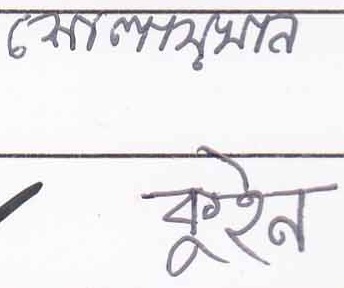 সোলায়মান
কুইন